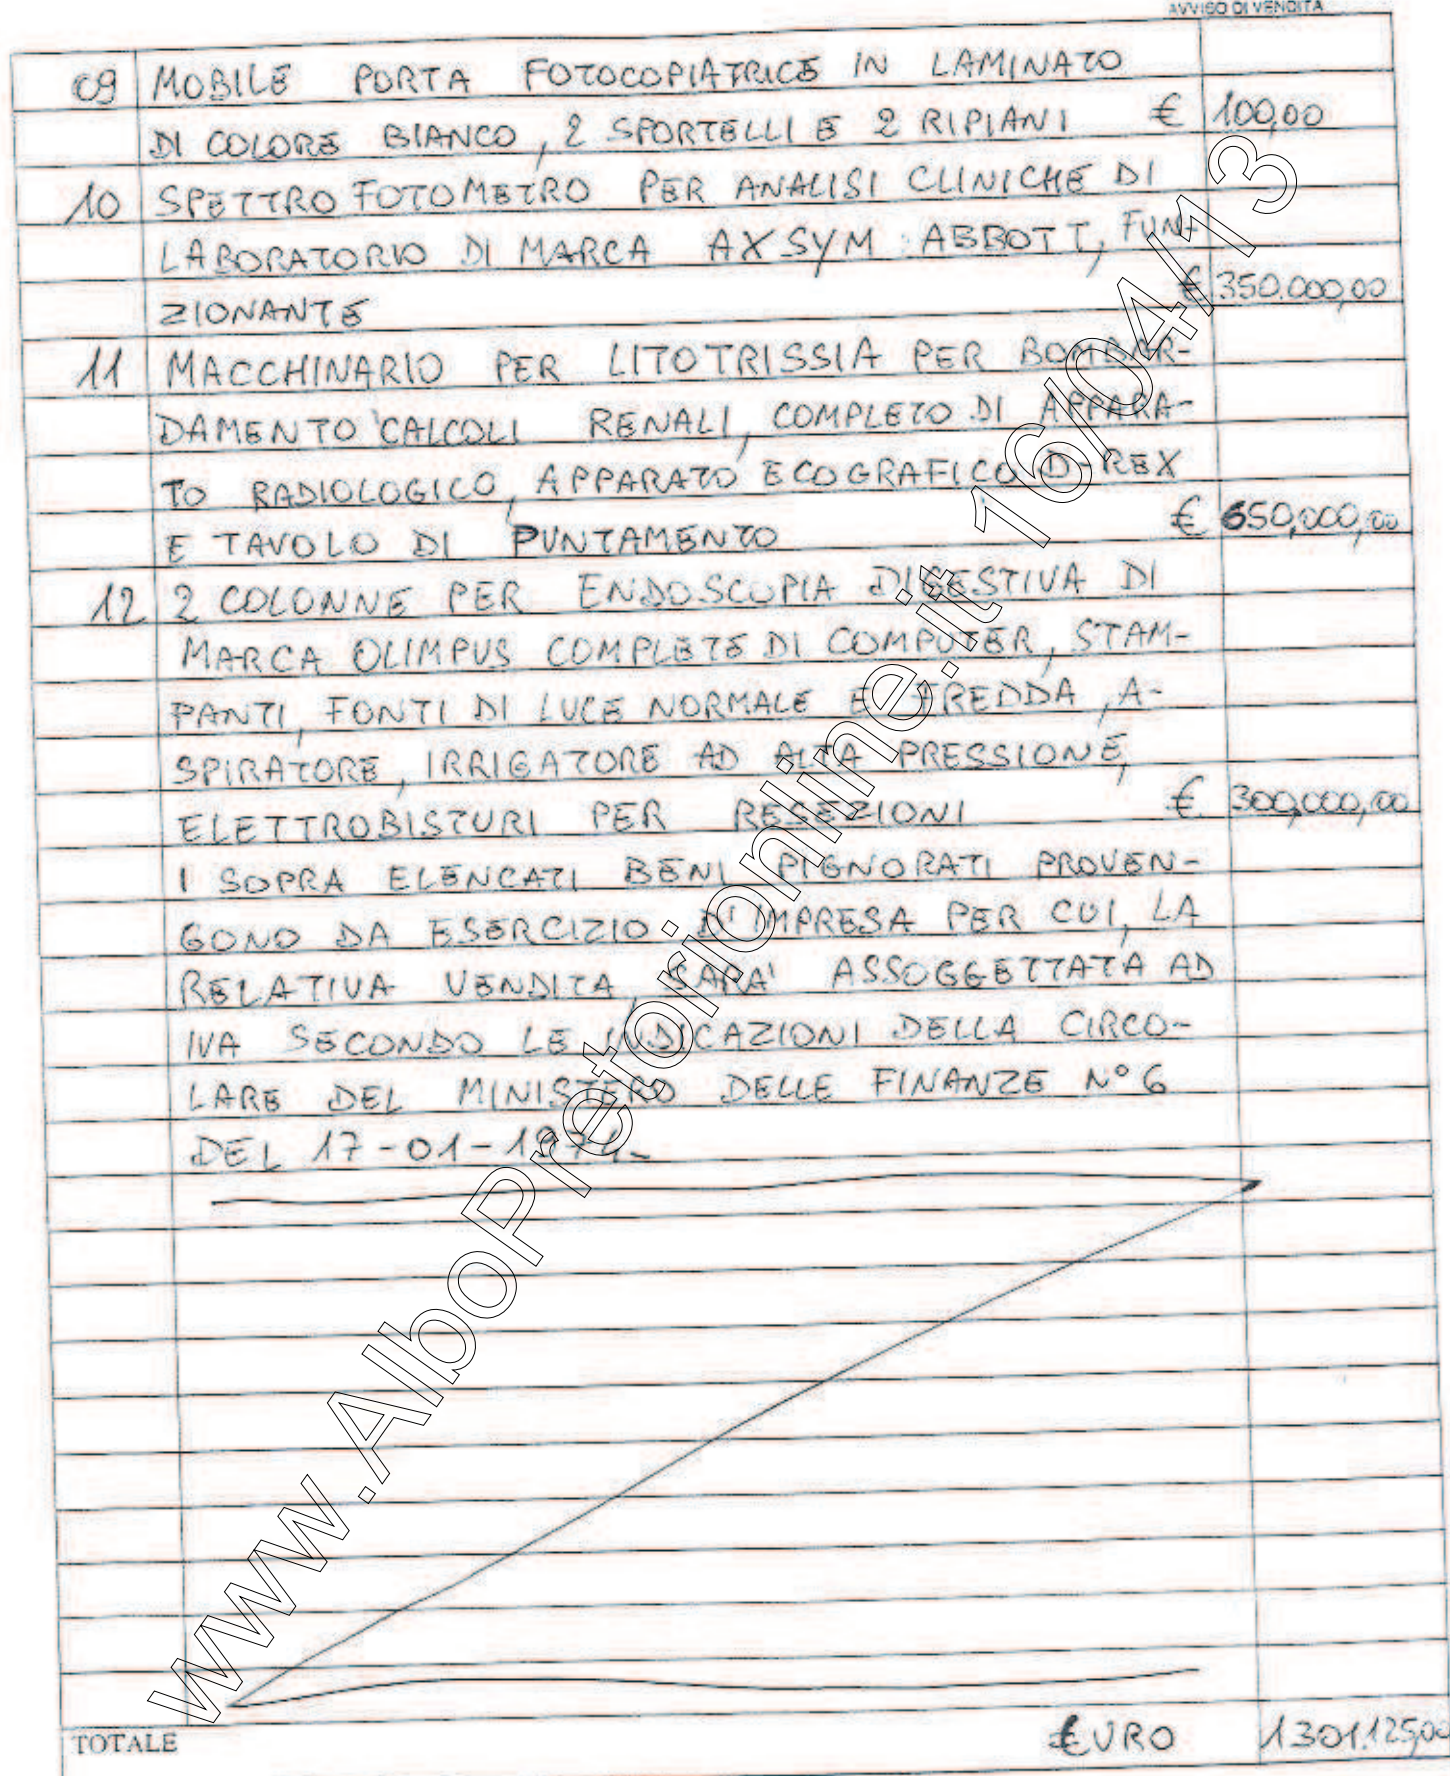 AVVISO DI VENDITA
09 MOBILE PORTA FOTOCOPIATRICE IN LAMINATO
DI COLORE BIANCO, 2 SPORTELLI E 2 RIPIANI € 100,00
10 SPETTROFOTOMETRO PER ANALISI CLINICHE DI
LABORATORIO DI MARCA AXSYM ABBOTT, FUN-
ZIONANTE € 350.000,00
11 MACCHINARIO PER LITOTRISSIA PER BOMBAR-
DAMENTO CALCOLI RENALI, COMPLETO DI APPARA-
TO RADIOLOGICO, APPARATO ECOGRAFICO D-REX
E TAVOLO DI PUNTAMENTO € 650,000,00
12 2 COLONNE PER ENDOSCOPIA DIGESTIVA DI
MARCA OLIMPUS COMPLETE DI COMPUTER, STAM-
PANTI, FONTI DI LUCE NORMALE E FREDDA, A-
SPIRATORE, IRRIGATORE AD ALTA PRESSIONE,
ELETTROBISTURI PER RESEZIONI € 300,000,00
I SOPRA ELENCATI BENI PIGNORATI PROVEN-
GONO DA ESERCIZIO D'IMPRESA PER CUI, LA
RELATIVA VENDITA, SARA' ASSOGGETTATA AD
IVA SECONDO LE INDICAZIONI DELLA CIRCO-
LARE DEL MINISTERO DELLE FINANZE N° 6
DEL 17-01-1974-
TOTALE €URO 1301.125,00
www.AlboPretorionline.it 16/04/13